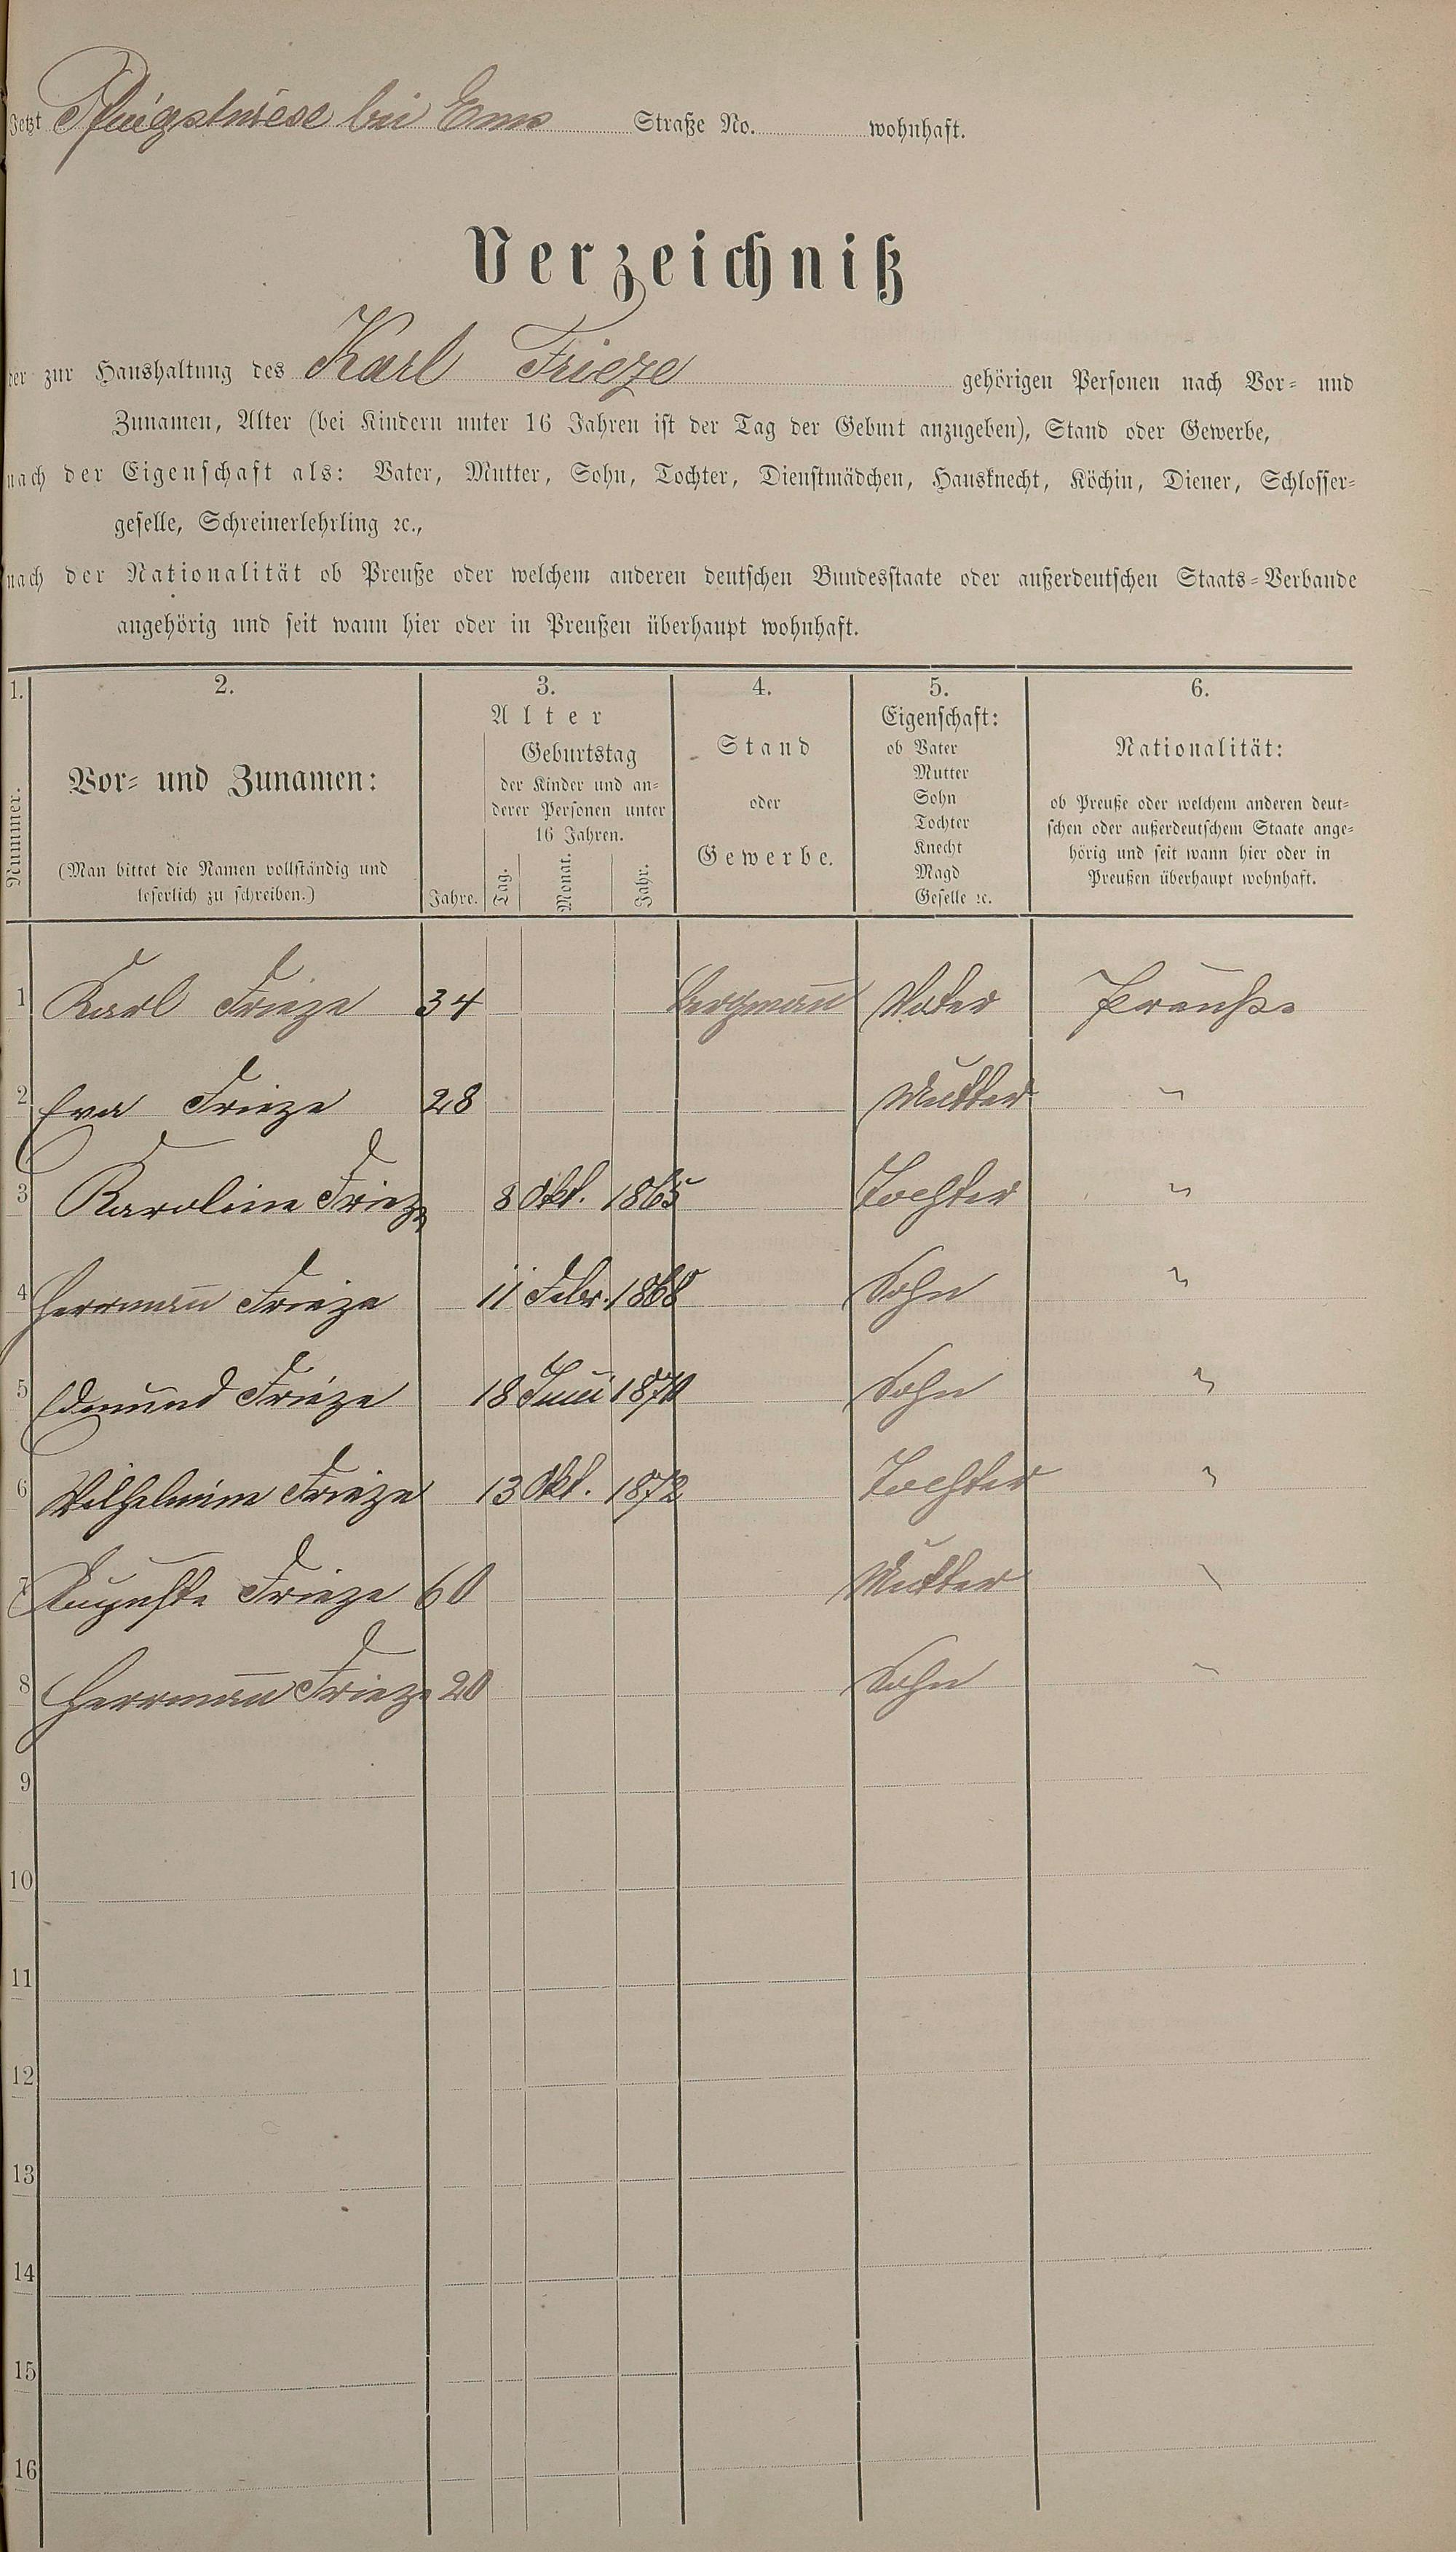 Jetzt Pfingstwiese bei Ems Straße No. wohnhaft.
Verzeichniß
der zur Haushaltung des Karl Frieze gehörigen Personen nach Vor- und
Zunamen, Alter (bei Kindern unter 16 Jahren ist der Tag der Geburt anzugeben), Stand oder Gewerbe,
nach der Eigenschaft als: Vater, Mutter, Sohn, Tochter, Dienstmädchen, Hausknecht, Köchin, Diener, Schlosser-
geselle, Schreinerlehrling ꝛc.,
nach der Nationalität ob Preuße oder welchem anderen deutschen Bundesstaate oder außerdeutschen Staats-Verbande
angehörig und seit wann hier oder in Preußen überhaupt wohnhaft.
1. 2. 3. 4. 5. 6.
Nummer.
Vor- und Zunamen:
(Man bittet die Namen vollständig und
leserlich zu schreiben.)
Alter
Jahre.
Geburtstag
der Kinder und an-
derer Personen unter
16 Jahren.
Tag. Monat. Jahr.
Stand
oder
Gewerbe.
Eigenschaft:
ob Vater
Mutter
Sohn
Tochter
Knecht
Magd
Geselle ꝛc.
Nationalität:
ob Preuße oder welchem anderen deut-
schen oder außerdeutschem Staate ange-
hörig und seit wann hier oder in
Preußen überhaupt wohnhaft.
1 Karl Frieze 34 Bergmañ Vater Preuße
2 Eva Frieze 28 Mutter "
3 Karoline Frieze 8 Okt. 1865 Tochter "
4 Herrmañ Frieze 11 Febr. 1868 Sohn "
5 Edmund Frieze 18 Juni 1870 Sohn "
6 Wilhelmine Frieze 13 Okt. 1872 Tochter "
7 Auguste Frieze 60 Mutter "
8 Herrmañ Frieze 20 Sohn "
9
10
11
12
13
14
15
16